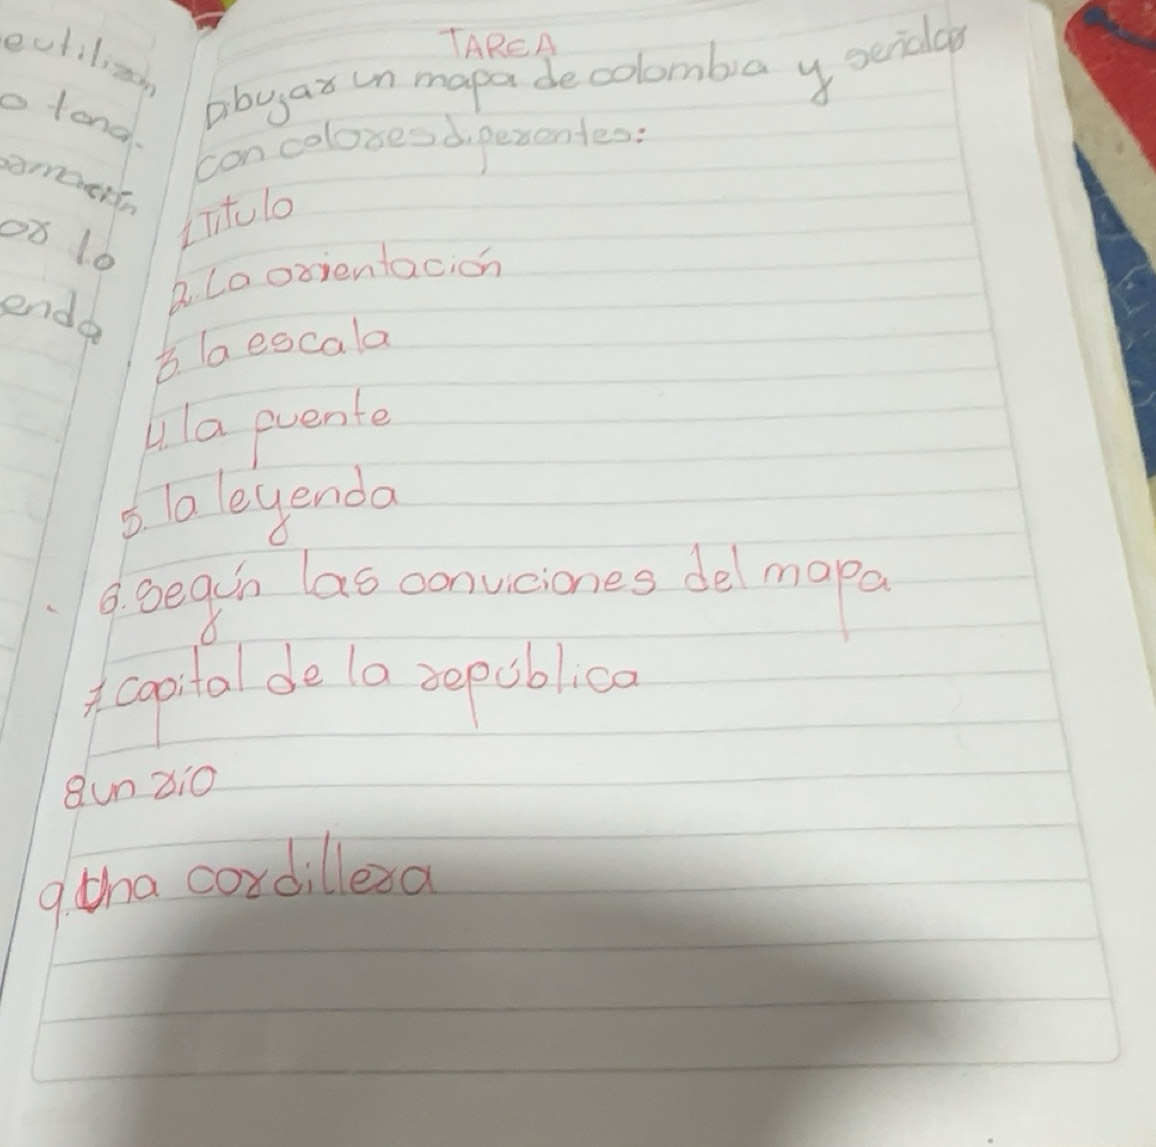 eutilizan
o tona.
or lo
enda
TAREA
Dibujar un mapa de colombia y señalar
con colores diferentes:
1 Titulo
2. La orientación
3. la escala
4. la fuente
5. la leyenda
6. Según las conviciones del mapa
7. capital de la república
8 un rio
9. Una cordillera